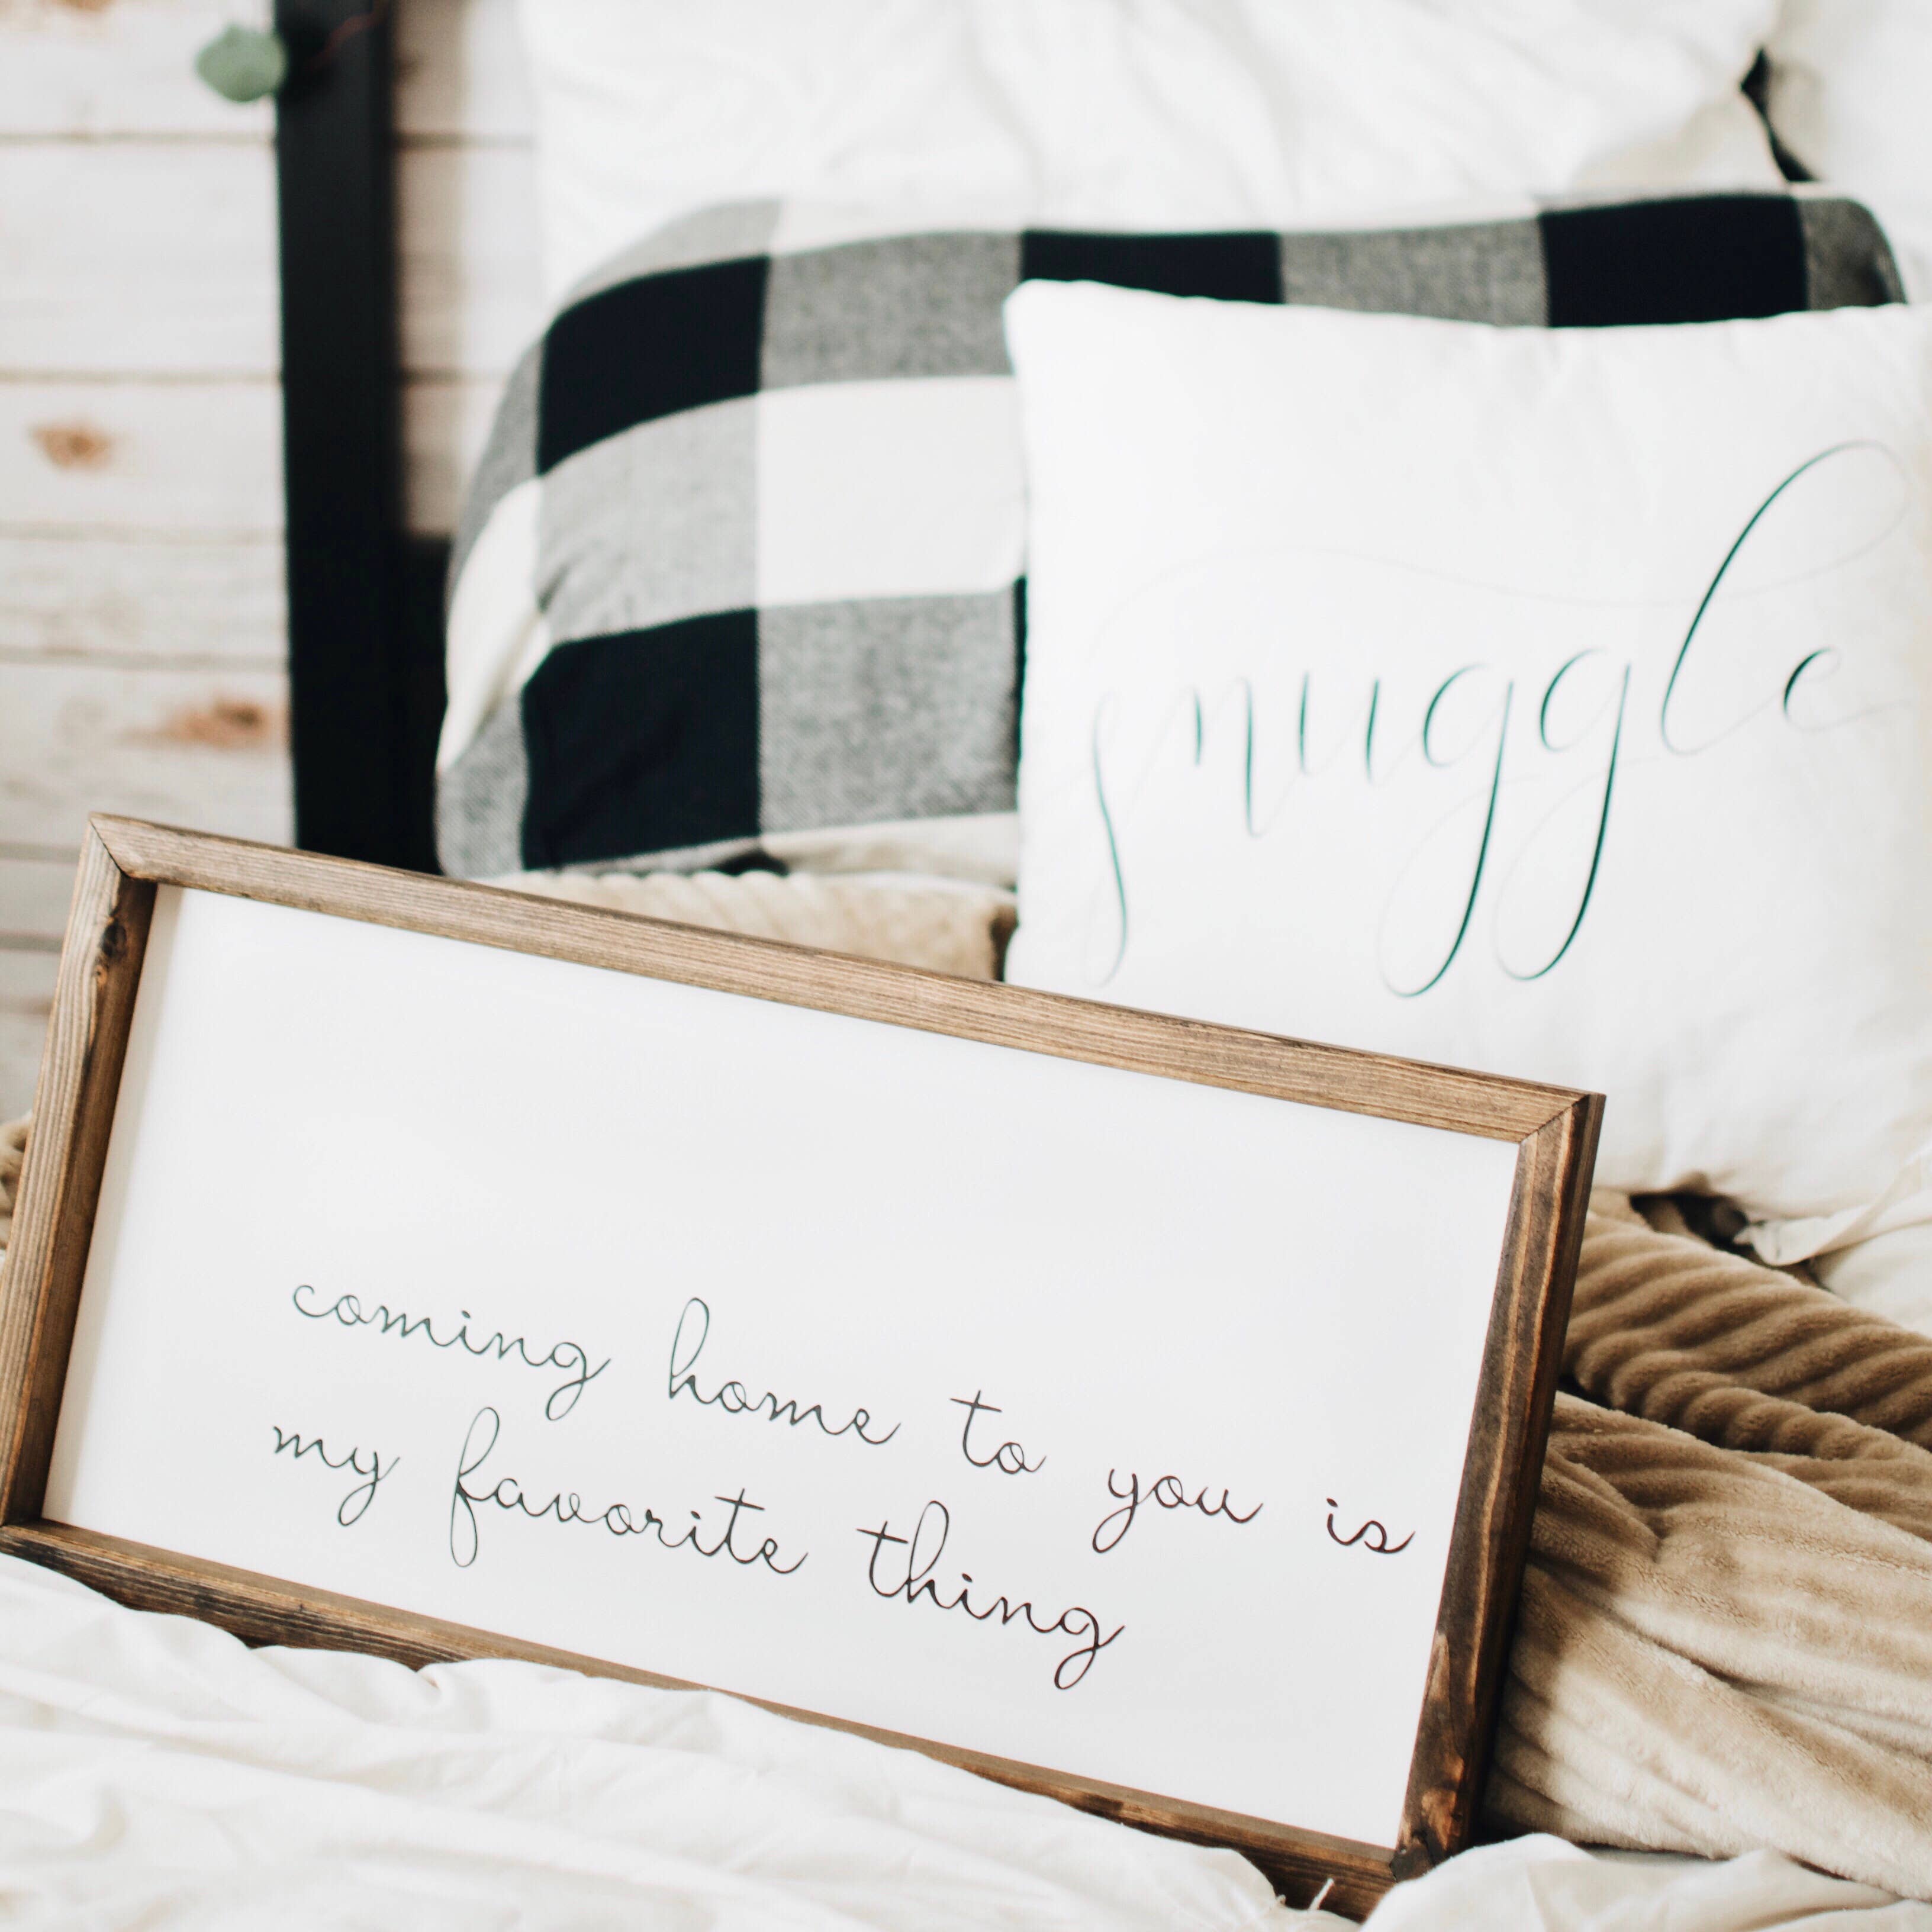 snuggle
coming home to you is
my favorite thing